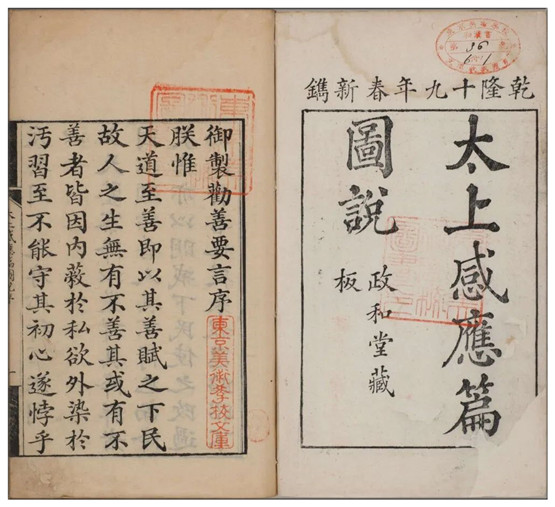 乾隆十九年春新鐫
太上感應篇
圖說
政和堂藏
板
御製勸善要言序
東京美術學校文庫
朕惟
天道至善即以其善賦之下民
故人之生無有不善其或有不
善者皆因內蔽於私欲外染於
汚習至不能守其初心遂悖乎